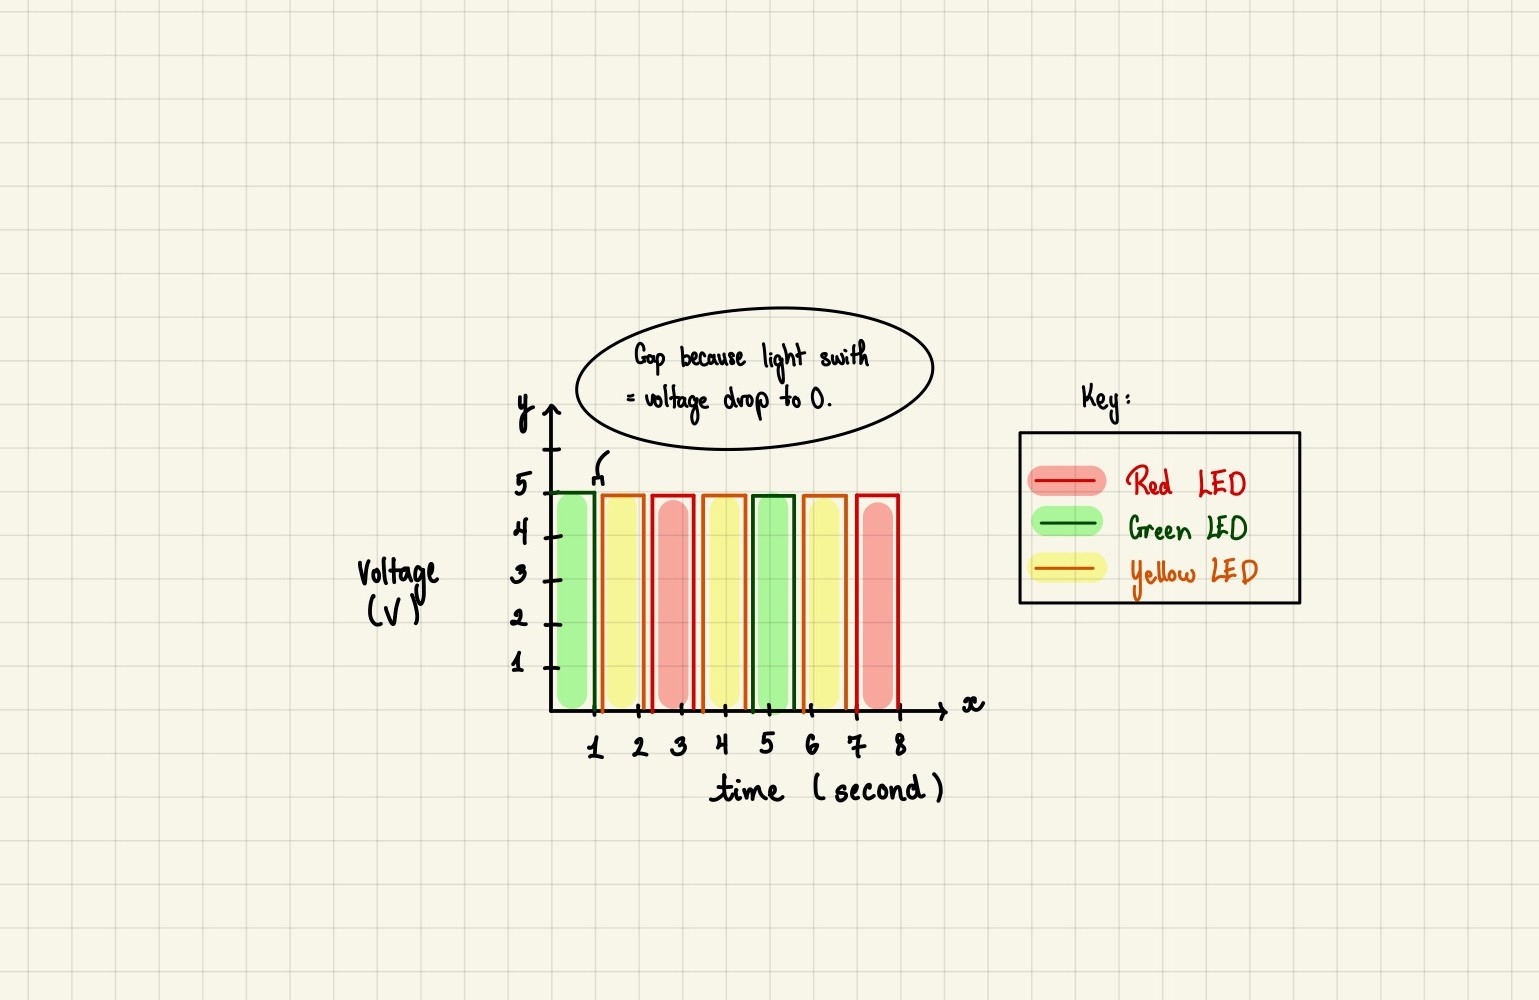 Gap because light swith
= voltage drop to 0.
y
5
4
3
2
1
Voltage
(V)
x
1 2 3 4 5 6 7 8
time (second)
Key:
Red LED
Green LED
Yellow LED